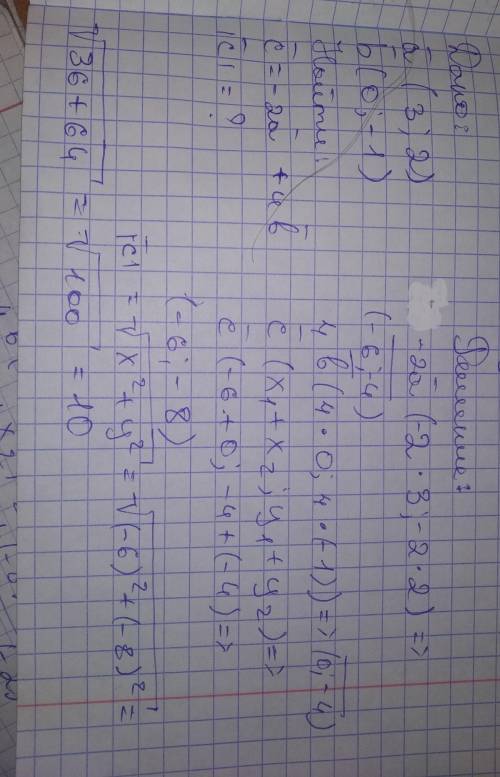 Дано:
ā (3; 2)
b̄ (0; -1)
Найти:
c̄ = -2ā + 4b̄
|c̄| = ?
Решение:
-2ā (-2 · 3; -2 · 2) =>
(-6; -4)
4b̄ (4 · 0; 4 · (-1)) => (0; -4)
c̄ (x₁ + x₂; y₁ + y₂) =>
c̄ (-6 + 0; -4 + (-4)) =>
(-6; -8)
|c̄| = √x² + y² = √(-6)² + (-8)² =
√36 + 64 = √100 = 10